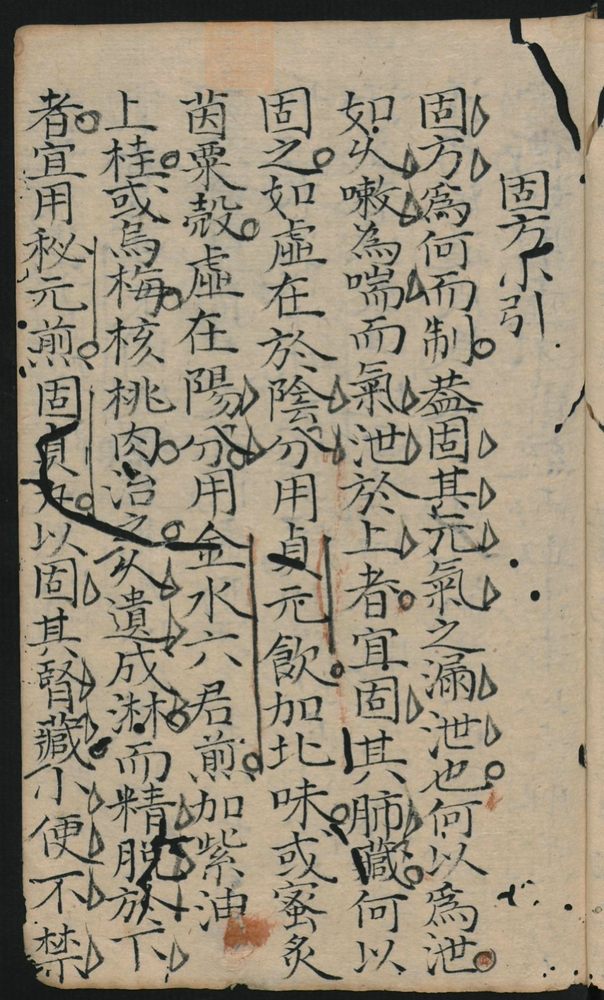 固方小引
固方爲何而制葢固其元氣之漏泄也何以爲泄
如久嗽為喘而氣泄於上者宜固其肺藏何以
固之如虛在於陰分用貞元飲加北味或蜜炙
茵粟殼虛在陽分用金水六君煎加紫油
上桂或烏梅核桃肉治之久遺成淋而精脫於下
者宜用秘元煎固真丸以固其腎藏小便不禁